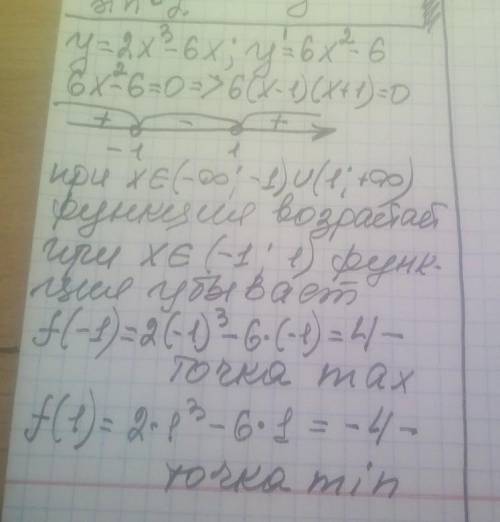 y=2x³-6x; y'=6x²-6
6x²-6=0=>6(x-1)(x+1)=0
+ - +
-1 1
при x∈(-∞;-1)∪(1;+∞)
функция возрастает
при x∈(-1;1) функ-
ция убывает
f(-1)=2(-1)³-6·(-1)=4-
точка max
f(1)=2·1³-6·1=-4-
точка min